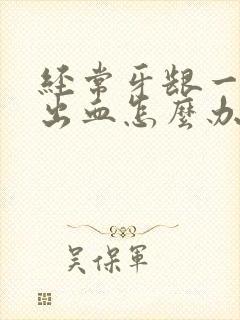 经常牙龈一
出血怎麼办
吴保軍